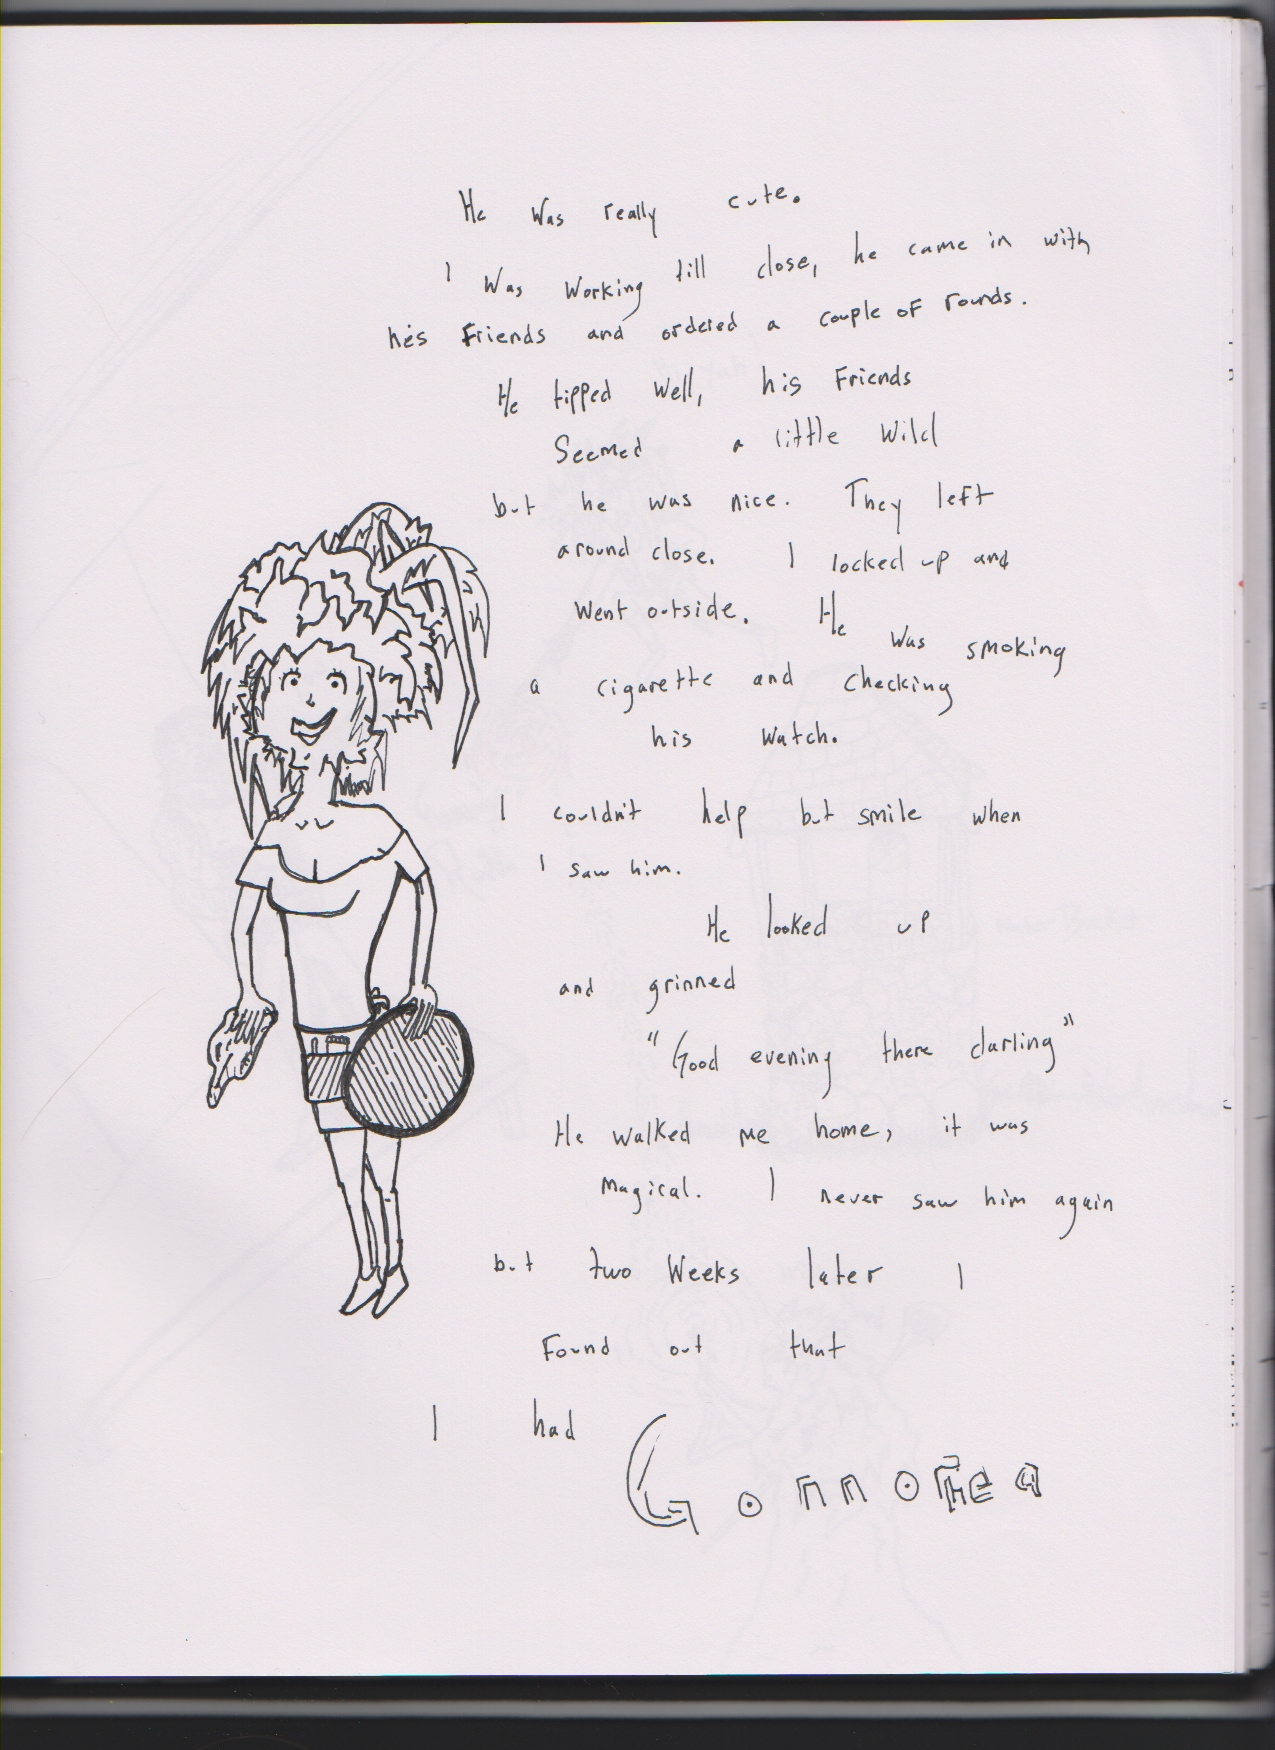 He was really cute.
I was working till close, he came in with
his friends and ordered a couple of rounds.
He tipped well, his friends
Seemed a little wild
but he was nice. They left
around close. I locked up and
went outside. He was smoking
a cigarette and checking
his watch.
I couldn't help but smile when
I saw him.
He looked up
and grinned
"Good evening there darling"
He walked me home, it was
magical. I never saw him again
but two weeks later I
found out that
I had Gonnorhea